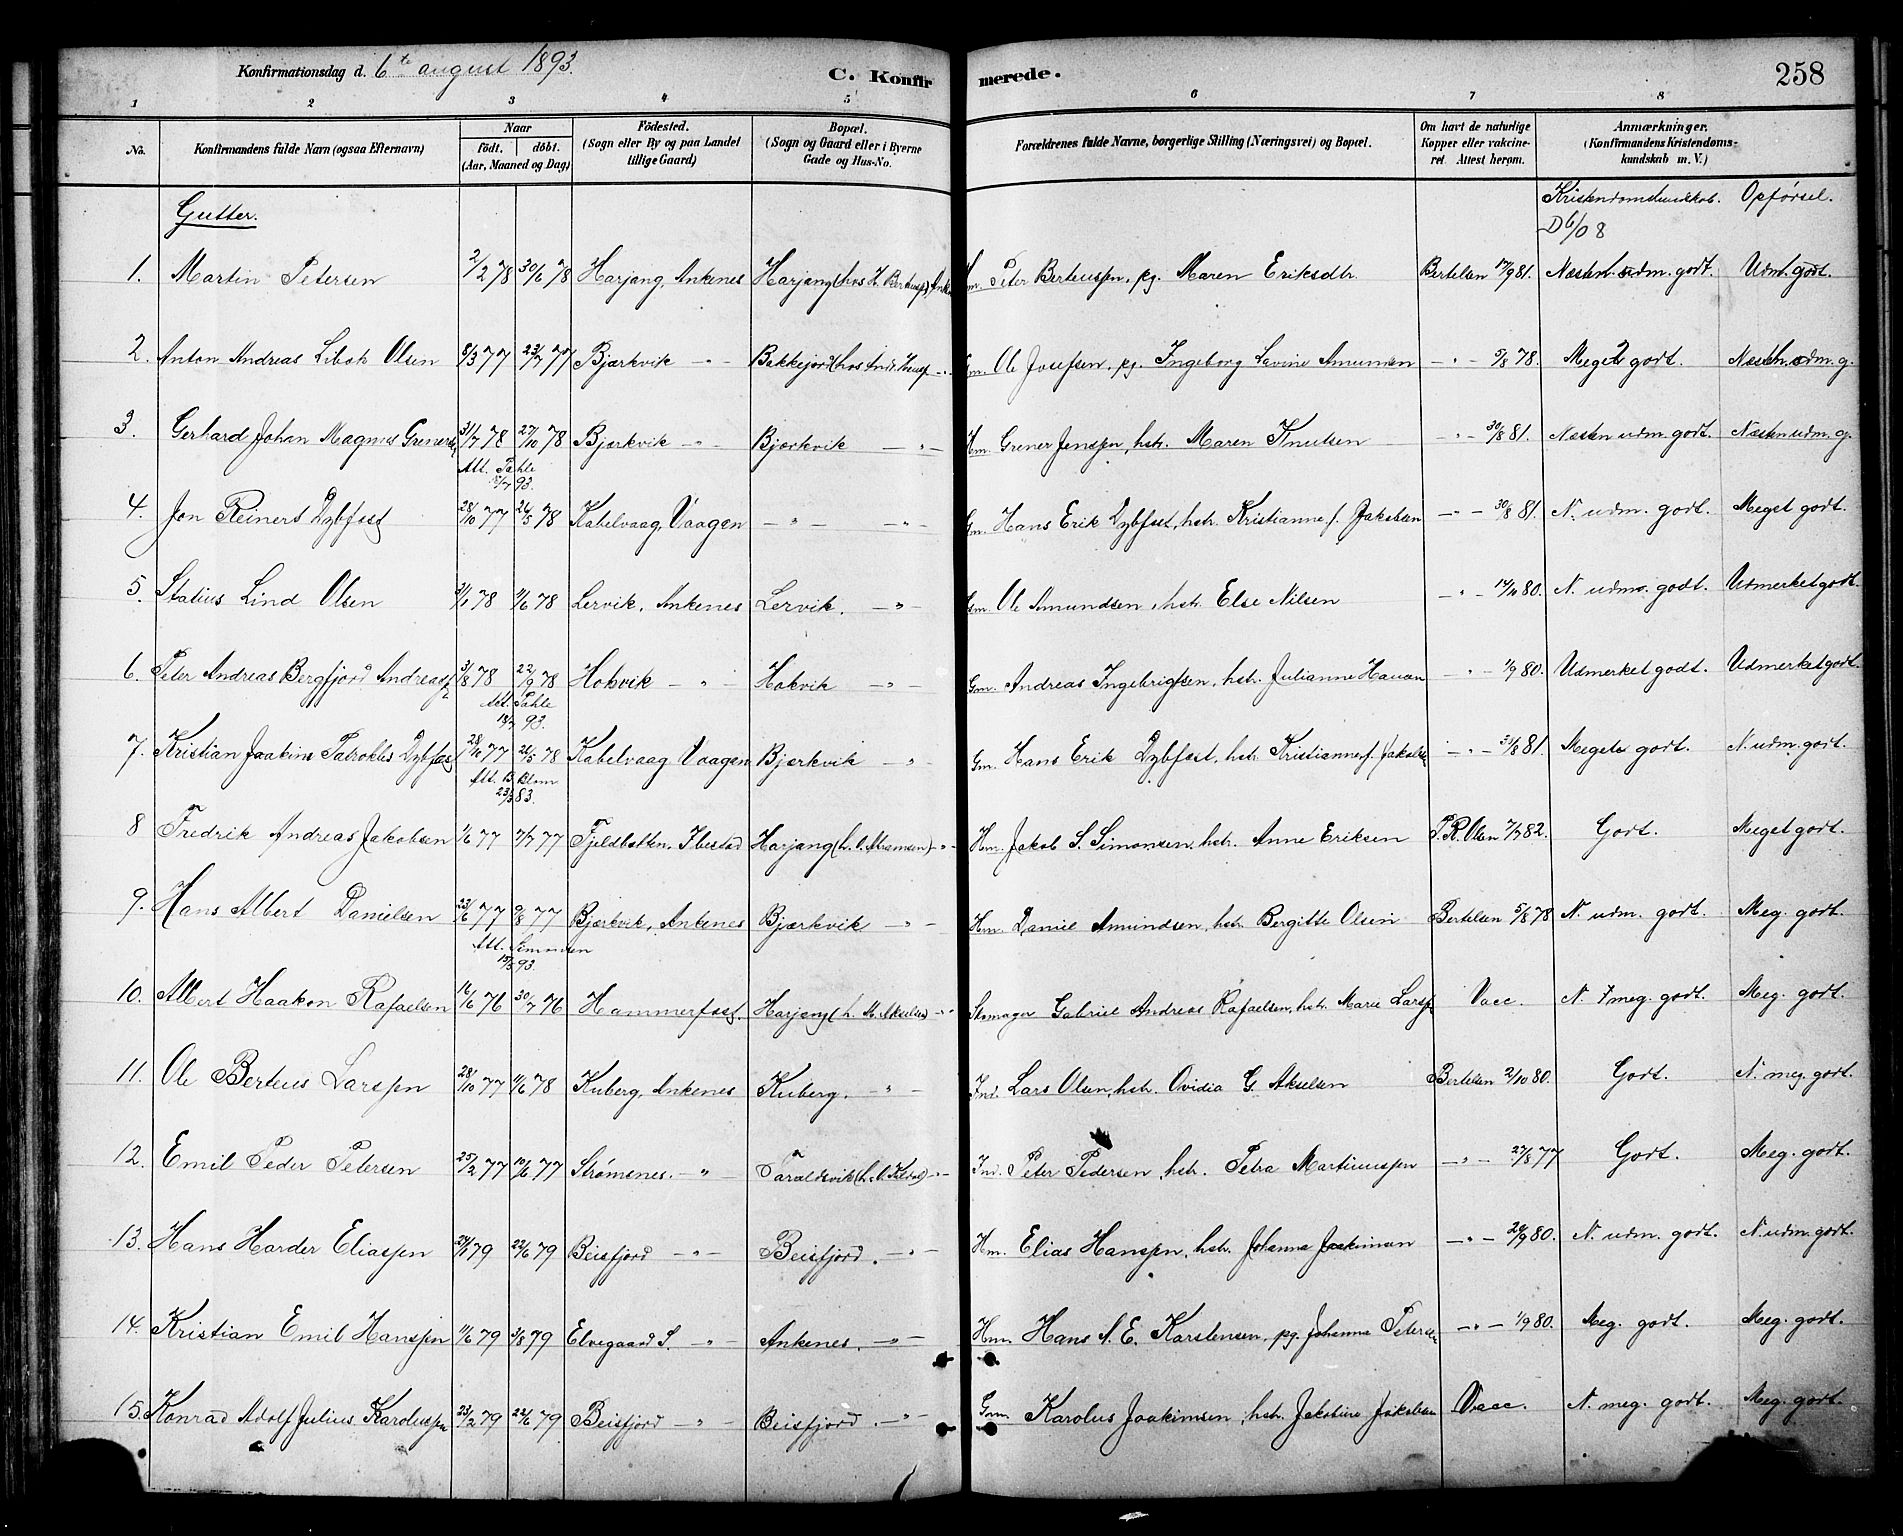 Konfirmationsdag d. 6te august 1893. C. Konfirmerede. 258
1 2 3 4 5 6 7 8
No. Konfirmandens fulde Navn (ogsaa Efternavn) Naar födt. döbt. (Aar, Maaned og Dag) Födested. (Sogn eller By og paa Landet tillige Gaard) Bopæl. (Sogn og Gaard eller i Byerne Gade og Hus-No. Forældrenes fulde Navne, borgerlige Stilling (Næringsvei) og Bopæl. Om havt de naturlige Kopper eller vakcineret. Attest herom. Anmærkninger. (Konfirmandens Kristendomskundskab m. V.)
Gutter. Kristendomskundskab. Opførsel.
D 6/0 8
1. Martin Petersen 2/2 78 30/6 78 Harjang, Ankenes Harjang (hos H. Berteusen), Hm. Peter Berteussen, pg. Maren Eriksdtr. Bertelsen 17/9 81. Næsten udm. godt. Udm. godt.
2. Anton Andreas Olsen 8/3 77 23/7 77 Bjærkvik -"- Bakkejord (hos And. -"- Gm. Ole Josefsen, pg. Ingeborg Lavine Amundsen -"- 5/8 78. Meget godt. Næsten udm. g.
3. Gerhard Johan Magnus Grenersen 31/7 78 27/10 78 Bjærkvik -"- Bjærkvik -"- Hm. Grener Jenssen, hstr. Maren Knutsen -"- 30/8 81. Næsten udm. godt. Næsten udm. g.
Att. Pahle 93.
4. Jon Reinert Dybfest 28/10 77 26/5 78 Kabelvaag, Vaagen -"- -"- Gm. Hans Erik Dybfest, hstr. Kristianne f. Jakobsen -"- 30/8 81. N. udm. godt. Meget godt.
5. Statius Lind Olsen 3/1 78 9/6 78 Lervik, Ankenes Lervik. -"- Gm. Ole Amundsen, hstr. Else Nilsen -"- 14/10 80. N. udm. godt. Udmerket godt.
6. Peter Andreas Bergfjord Andreassen 3/8 78 22/9 78 Hokvik -"- Hokvik -"- Gm. Andreas Ingebrigtsen, hstr. Julianne Hauan -"- 1/9 80. Udmerket godt. Udmerket godt.
Att. Pahle 93.
7. Kristian Joakim Patroklus Dybfest 28/10 77 26/5 78 Kabelvaag Vaagen Bjærkvik -"- Gm. Hans Erik Dybfest, hstr. Kristianne f. Jakobsen -"- 31/8 81. Meget godt. N. udm. godt.
Att. B. Blom 23/3 83.
8 Fredrik Andreas Jakobsen 1/6 77 7/7 77 Fjeldbotten, Ibestad Harjang (h. O. Abramsen) -"- Hm. Jakob S. Simonsen, hstr. Anne Eriksen P. R. Olsen 7/7 82. Godt. Meget godt.
9. Hans Albert Danielsen 23/6 77 9/8 77 Bjærkvik, Ankenes Bjærkvik -"- Hm. Daniel Amundsen, hstr. Bergitte Olsen Bertelsen 5/8 78 N. udm. godt. Meg. godt.
Att. 93.
10. Albert Haakon Rafaelsen 16/6 76 30/7 76 Hammerfest. Harjang (h. M. Akselsen) -"- Skomager Gabriel Andreas Rafaelsen, hstr. Marie Larsen Vacc. N. meg. godt. Meg. godt.
11. Ole Berteus Larssen 28/10 77 9/6 78 Kuberg, Ankenes Kuberg. -"- Ind. Lars Olsen, hstr. Ovidia G. Akselsen Bertelsen 2/10 80. Godt. N. meg. godt.
12. Emil Peder Petersen 25/2 77 10/6 77 Strømsnes. -"- Taraldsvik -"- Ind. Peter Pedersen, hstr. Petra Martinussen -"- 27/8 77 Godt. Meg. godt.
13. Hans Harder Eliassen 24/1 79 22/6 79 Beisfjord -"- Beisfjord. -"- Hm. Elias Hanssen, hstr. Johanna Joakimsen -"- 24/9 80. N. udm. godt. N. udm. godt.
14. Kristian Emil Hanssen 11/6 79 3/8 79 Elvegaard S. -"- Ankenes. -"- Hm. Hans A. E. Karstensen, pg. Johanna Petersen -"- 1/9 80. Meg. godt. Meg. godt.
15. Konrad Adolf Julius Karolussen 23/2 79 22/6 79 Beisfjord -"- Beisfjord. -"- Gm. Karolus Joakimsen, hstr. Jakobine Jakobsen Vacc. N. meg. godt. Meg. godt.